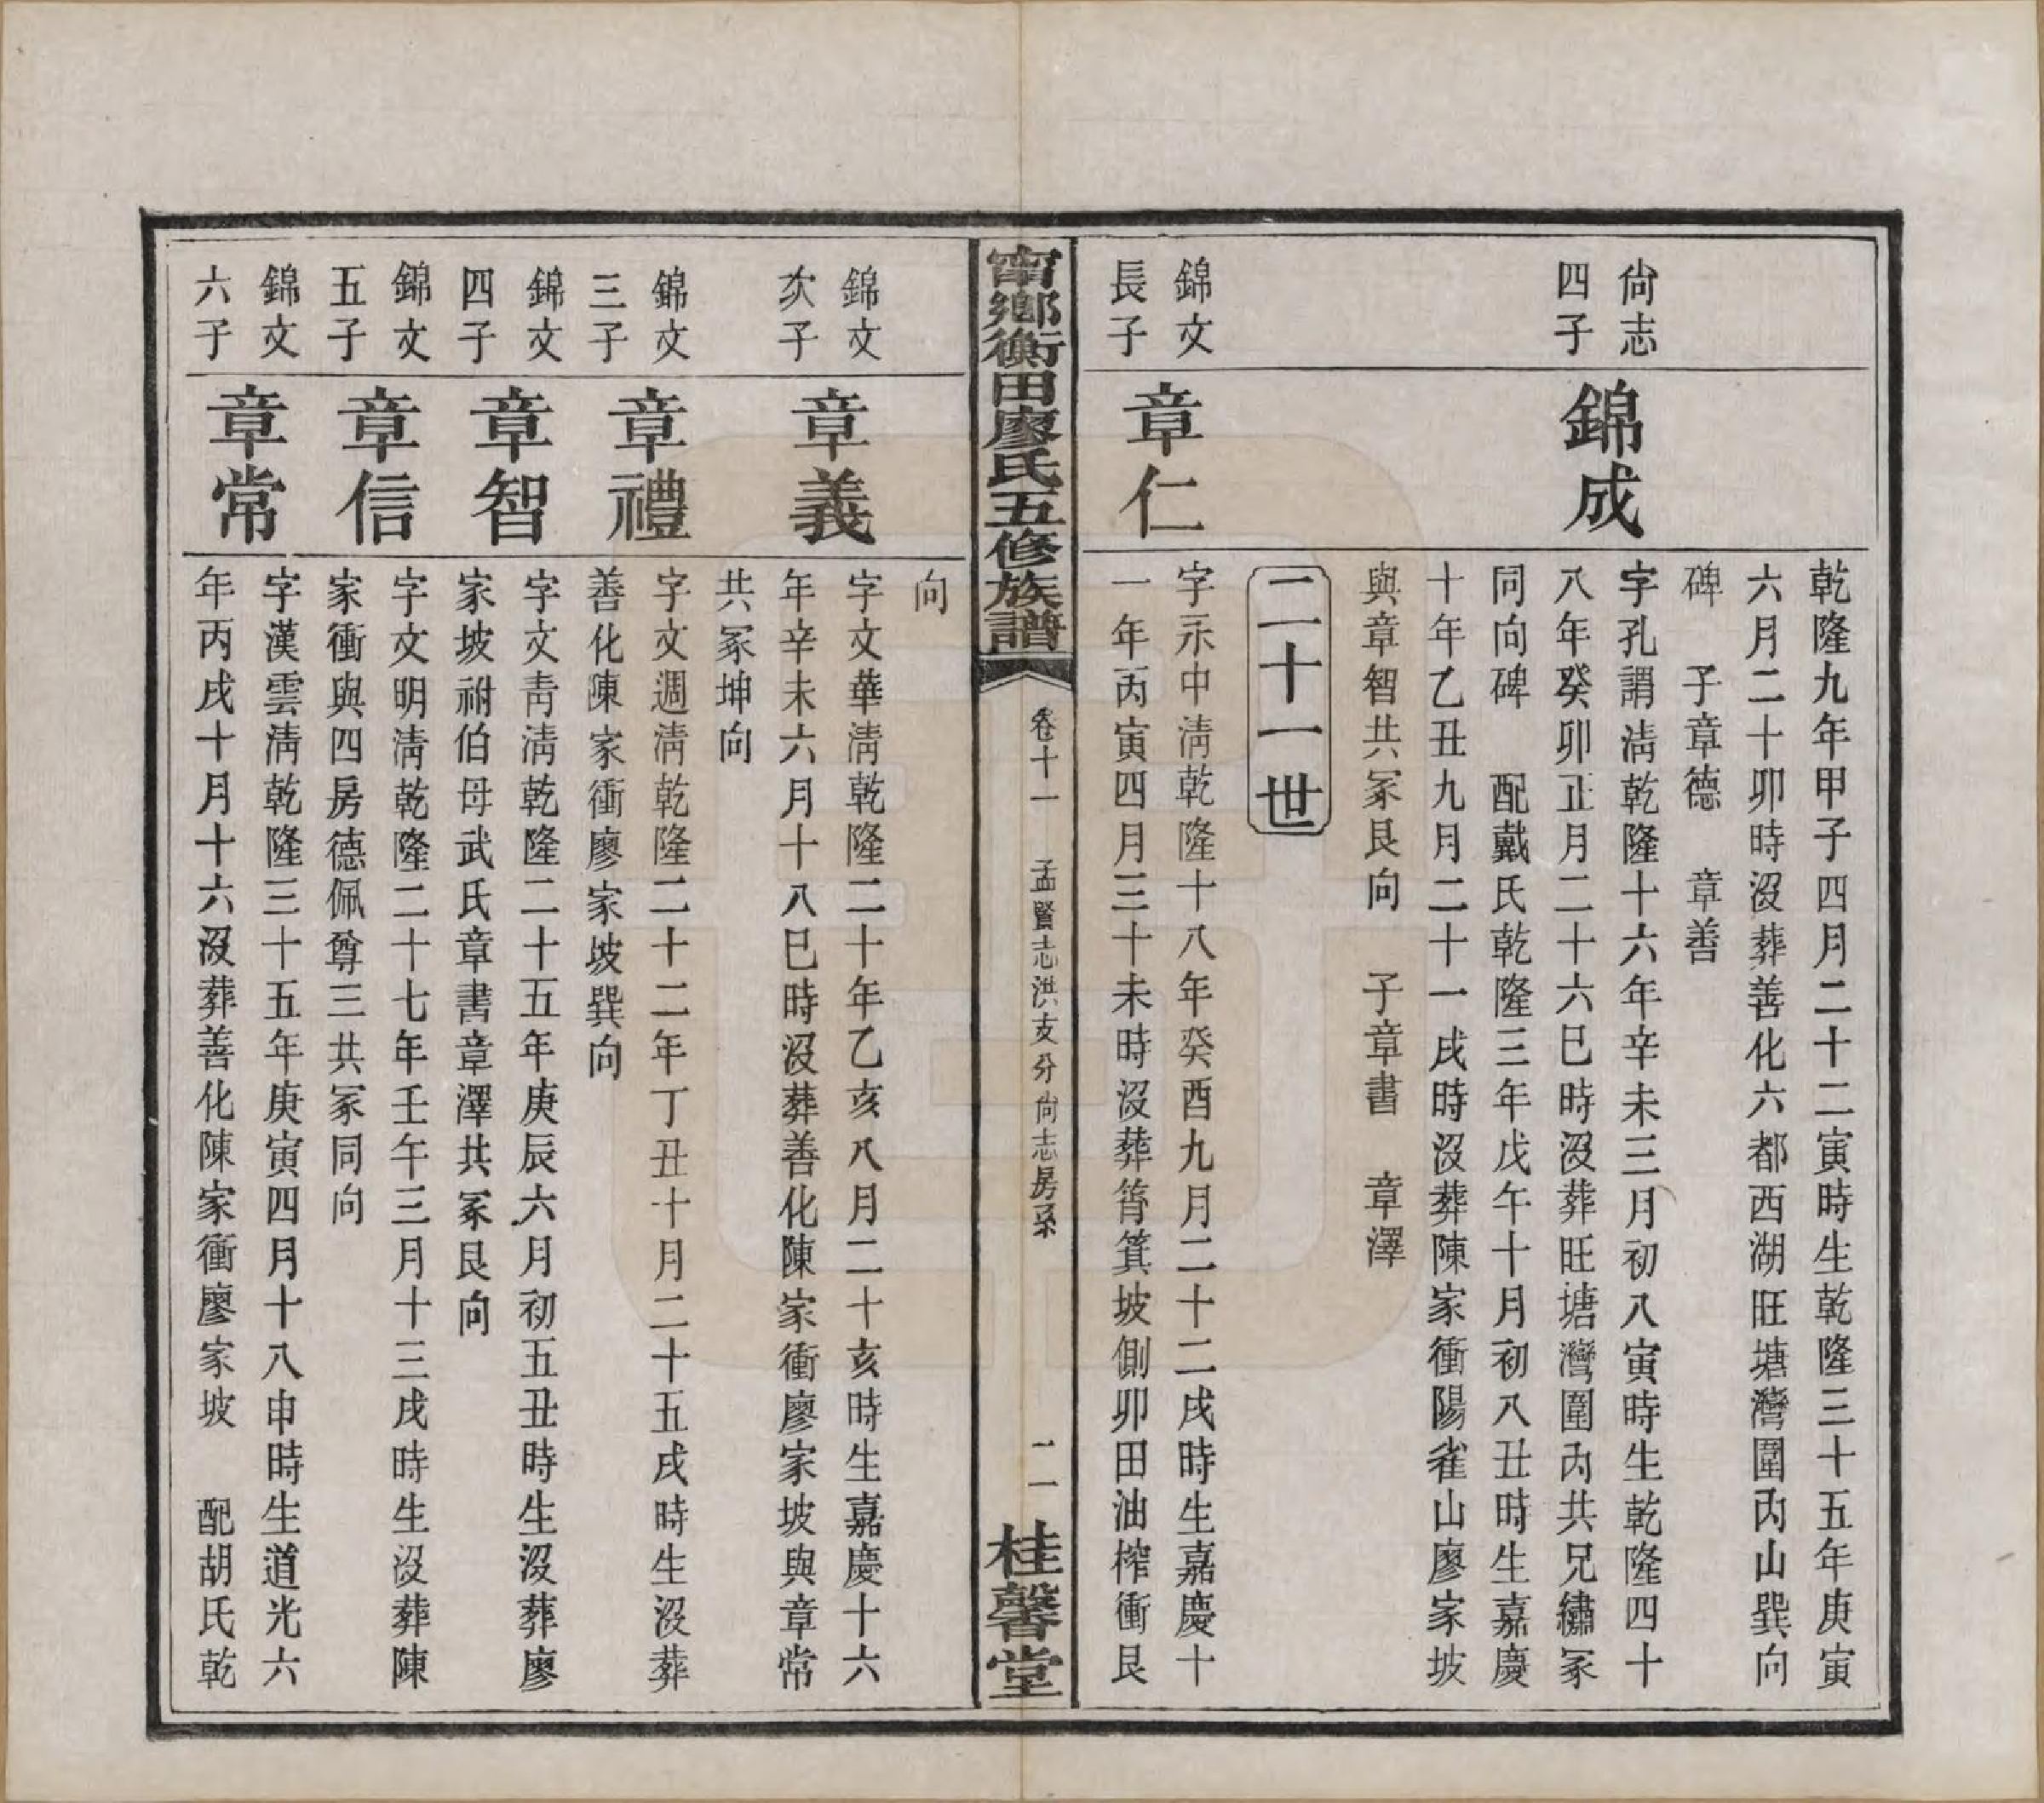 乾隆九年甲子四月二十二寅時生乾隆三十五年庚寅
六月二十卯時沒葬善化六都西湖旺塘灣圍內山巽向
碑　子章德　章善
尚志
四子
錦成
字孔謂淸乾隆十六年辛未三月初八寅時生乾隆四十
八年癸卯正月二十六巳時沒葬旺塘灣圍內共兄繡冢
同向碑　配戴氏乾隆三年戊午十月初八丑時生嘉慶
十年乙丑九月二十一戌時沒葬陳家衝陽雀山廖家坡
與章智共冢艮向　子章書　章澤
二十一世
錦文
長子
章仁
字永中淸乾隆十八年癸酉九月二十二戌時生嘉慶十
一年丙寅四月三十未時沒葬筲箕坡側卯田油榨衝艮
甯鄉衡田廖氏五修族譜
卷十一　孟賢志洪支分尚志房系
二一
桂馨堂
向
錦文
次子
章義
字文華淸乾隆二十年乙亥八月二十亥時生嘉慶十六
年辛未六月十八巳時沒葬善化陳家衝廖家坡與章常
共冢坤向
錦文
三子
章禮
字文週淸乾隆二十二年丁丑十月二十五戌時生沒葬
善化陳家衝廖家坡巽向
錦文
四子
章智
字文靑淸乾隆二十五年庚辰六月初五丑時生沒葬廖
家坡祔伯母武氏章書章澤共冢艮向
錦文
五子
章信
字文明淸乾隆二十七年壬午三月十三戌時生沒葬陳
家衝與四房德佩尊三共冢同向
錦文
六子
章常
字漢雲淸乾隆三十五年庚寅四月十八申時生道光六
年丙戌十月十六沒葬善化陳家衝廖家坡　配胡氏乾